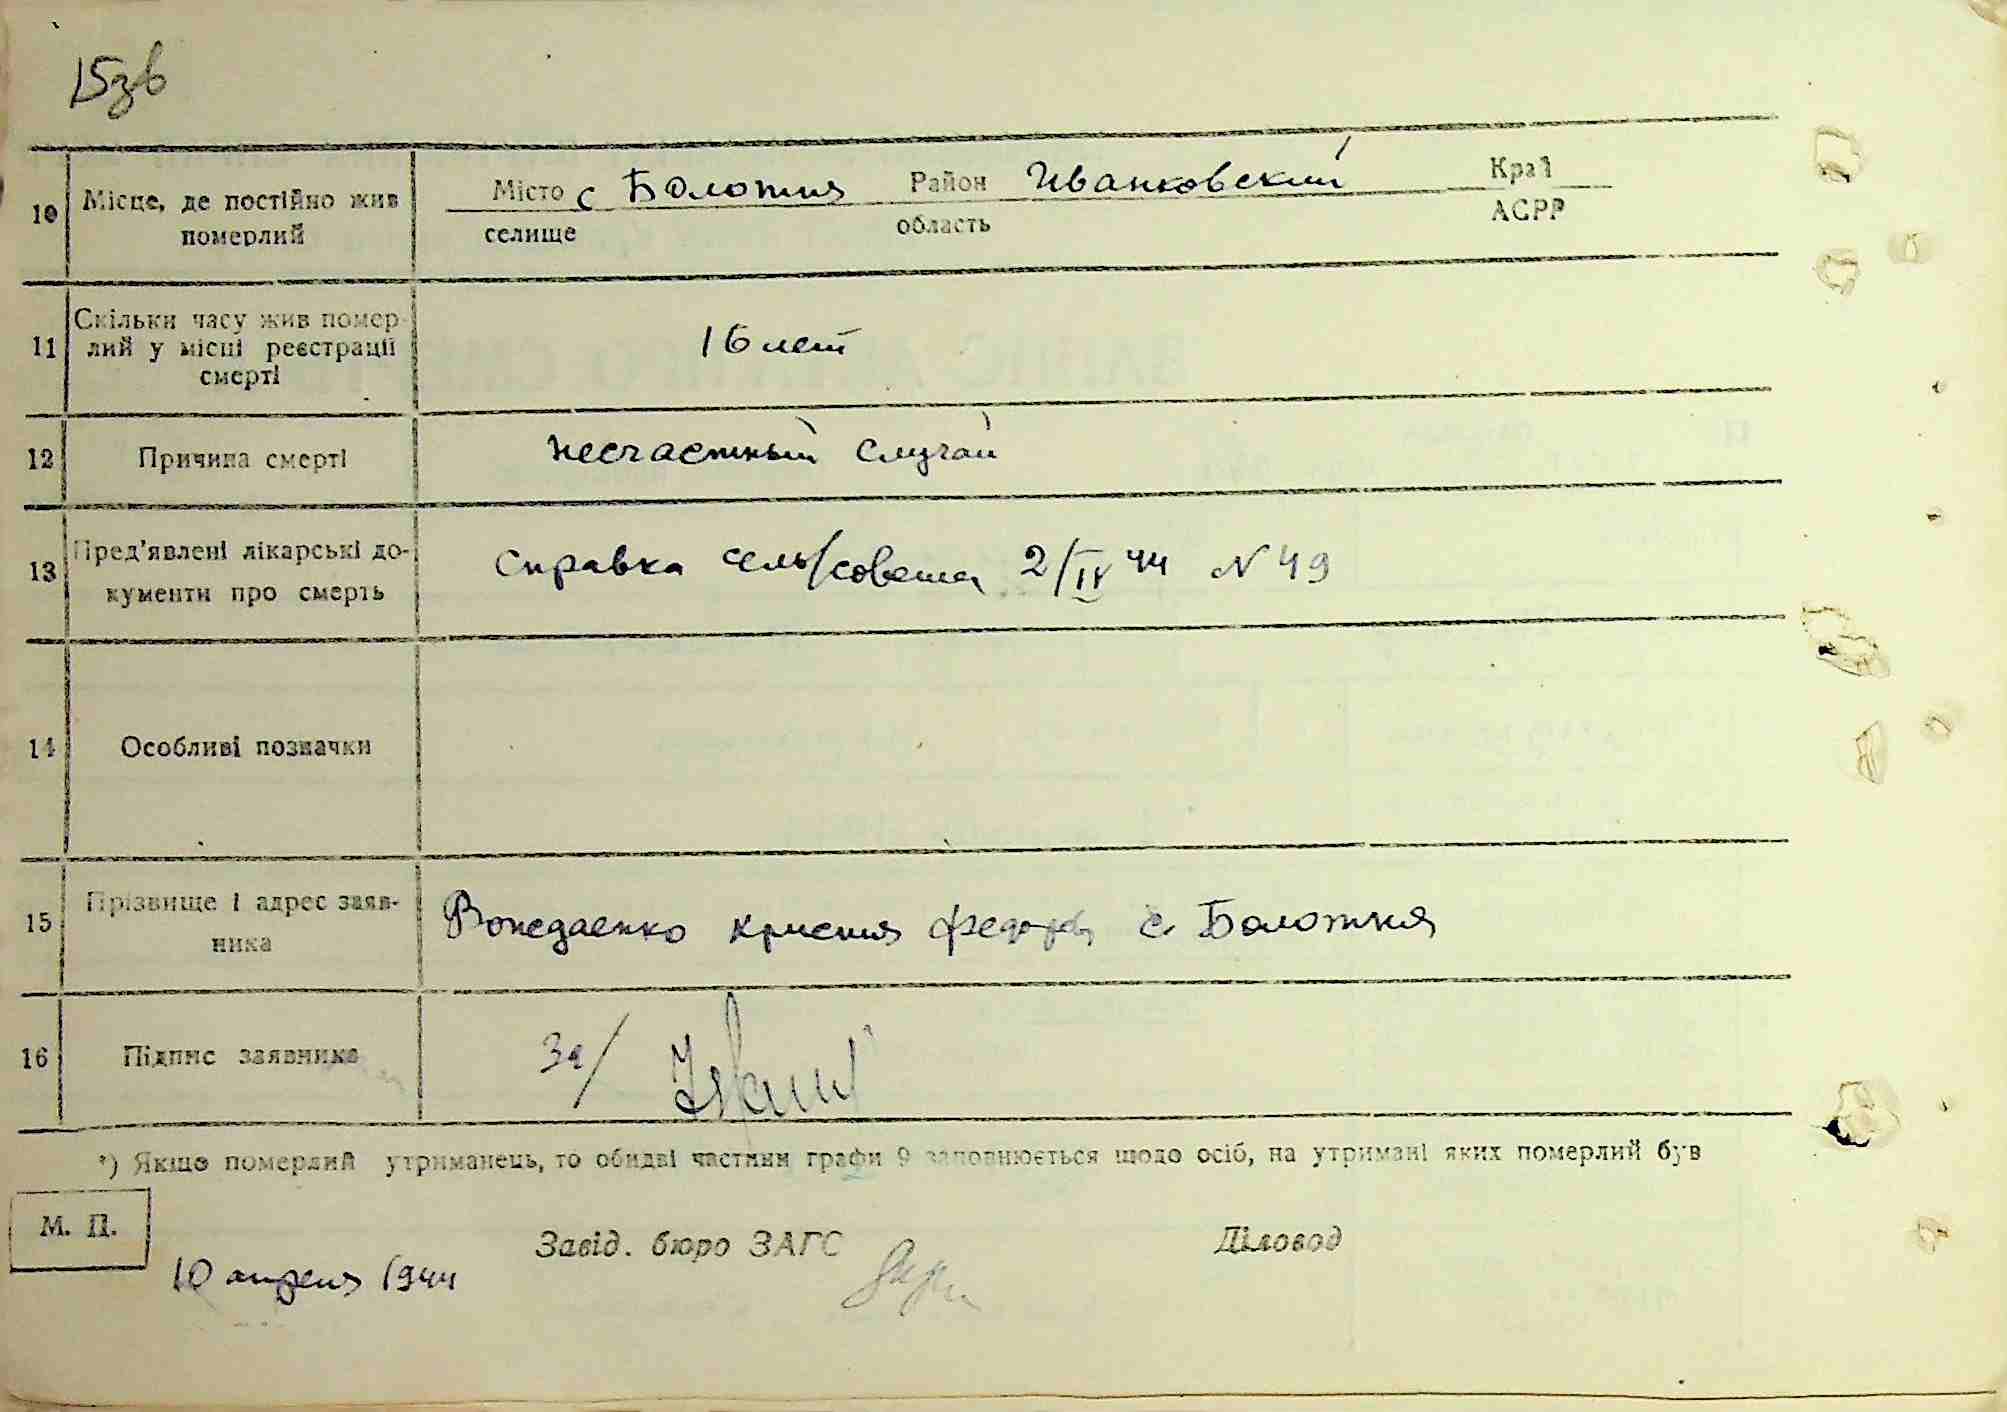 15зв
10 Місце, де постійно жив померлий
Місто с Болотня Район Иванковский Край
селище область АСРР
11 Скільки часу жив помер-
лий у місці реєстрації
смерті
16 лет
12 Причина смерті
несчастный случай
13 Пред’явлені лікарські до-
кументи про смерть
Справка сель/совета 2/IV 44 N 49
14 Особливі позначки
15 Прізвище і адрес заяв-
ника
Кристя Федор с. Болотня
16 Підпис заявника
За/
*) Якщо померлий утриманець, то обидві частини графи 9 заповнюється щодо осіб, на утримані яких померлий був
М. П.
Завід. бюро ЗАГС Діловод
10 апреля 1944